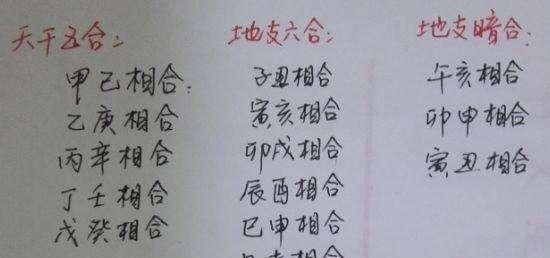 天干五合：
甲己相合：
乙庚相合
丙辛相合
丁壬相合
戊癸相合
地支六合：
子丑相合
寅亥相合
卯戌相合
辰酉相合
巳申相合
地支暗合：
午亥相合
卯申相合
寅丑相合